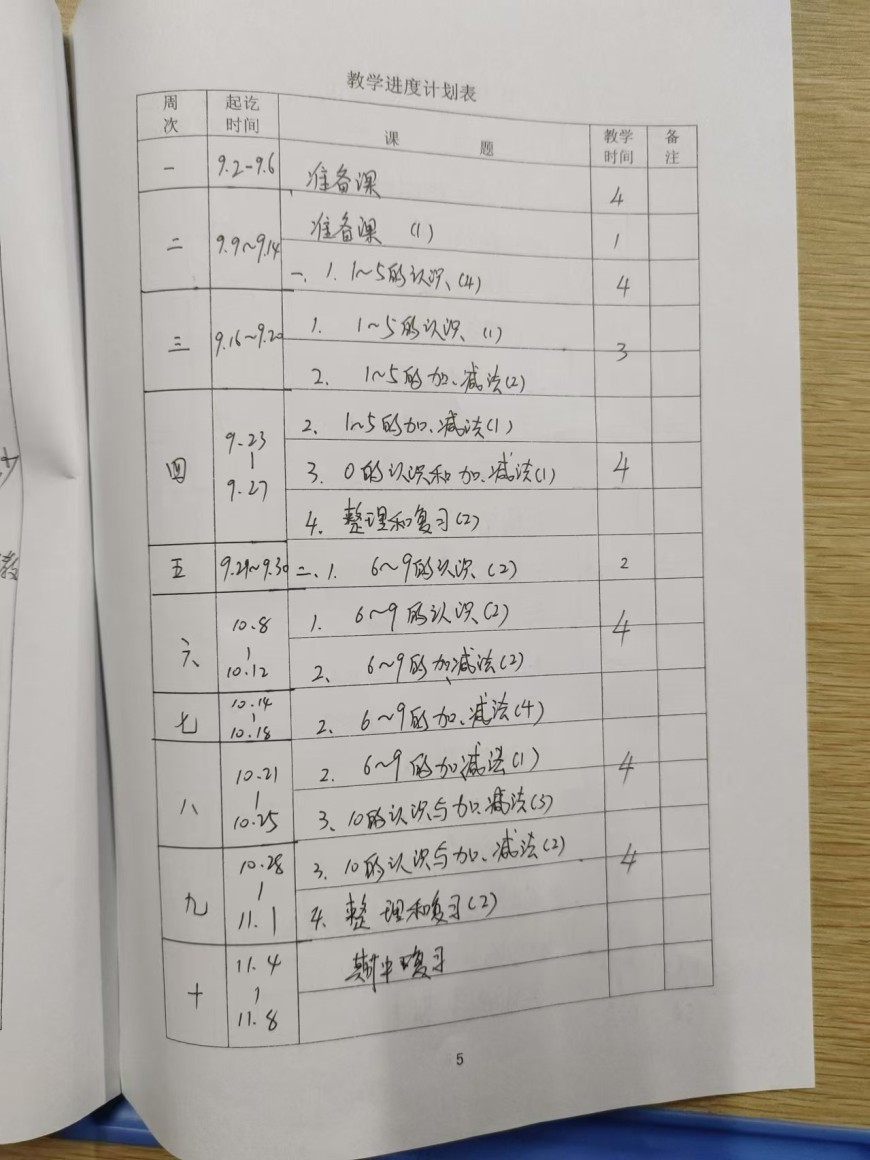 教学进度计划表
周次 起讫时间 课题 教学时间 备注
一 9.2-9.6 准备课 4
二 9.9~9.14 准备课 (1) 1
一、1. 1~5的认识、(4) 4
三 9.16~9.20 1. 1~5的认识、(1) 3
2. 1~5的加、减法(2)
四 9.23 | 9.27 2、1~5的加、减法(1)
3. 0的认识和加、减法(1) 4
4. 整理和复习(2)
五 9.29~9.30 二、1. 6~9的认识、(2) 2
六、 10.8 | 10.12 1. 6~9的认识(2) 4
2、6~9的加、减法(2)
七 10.14 | 10.18 2、6~9的加、减法(4)
八 10.21 | 10.25 2. 6~9的加减法(1) 4
3、10的认识与加、减法(3)
九 10.28 | 11.1 3. 10的认识与加、减法(2) 4
4. 整理和复习(2)
十 11.4 | 11.8 期中复习
5